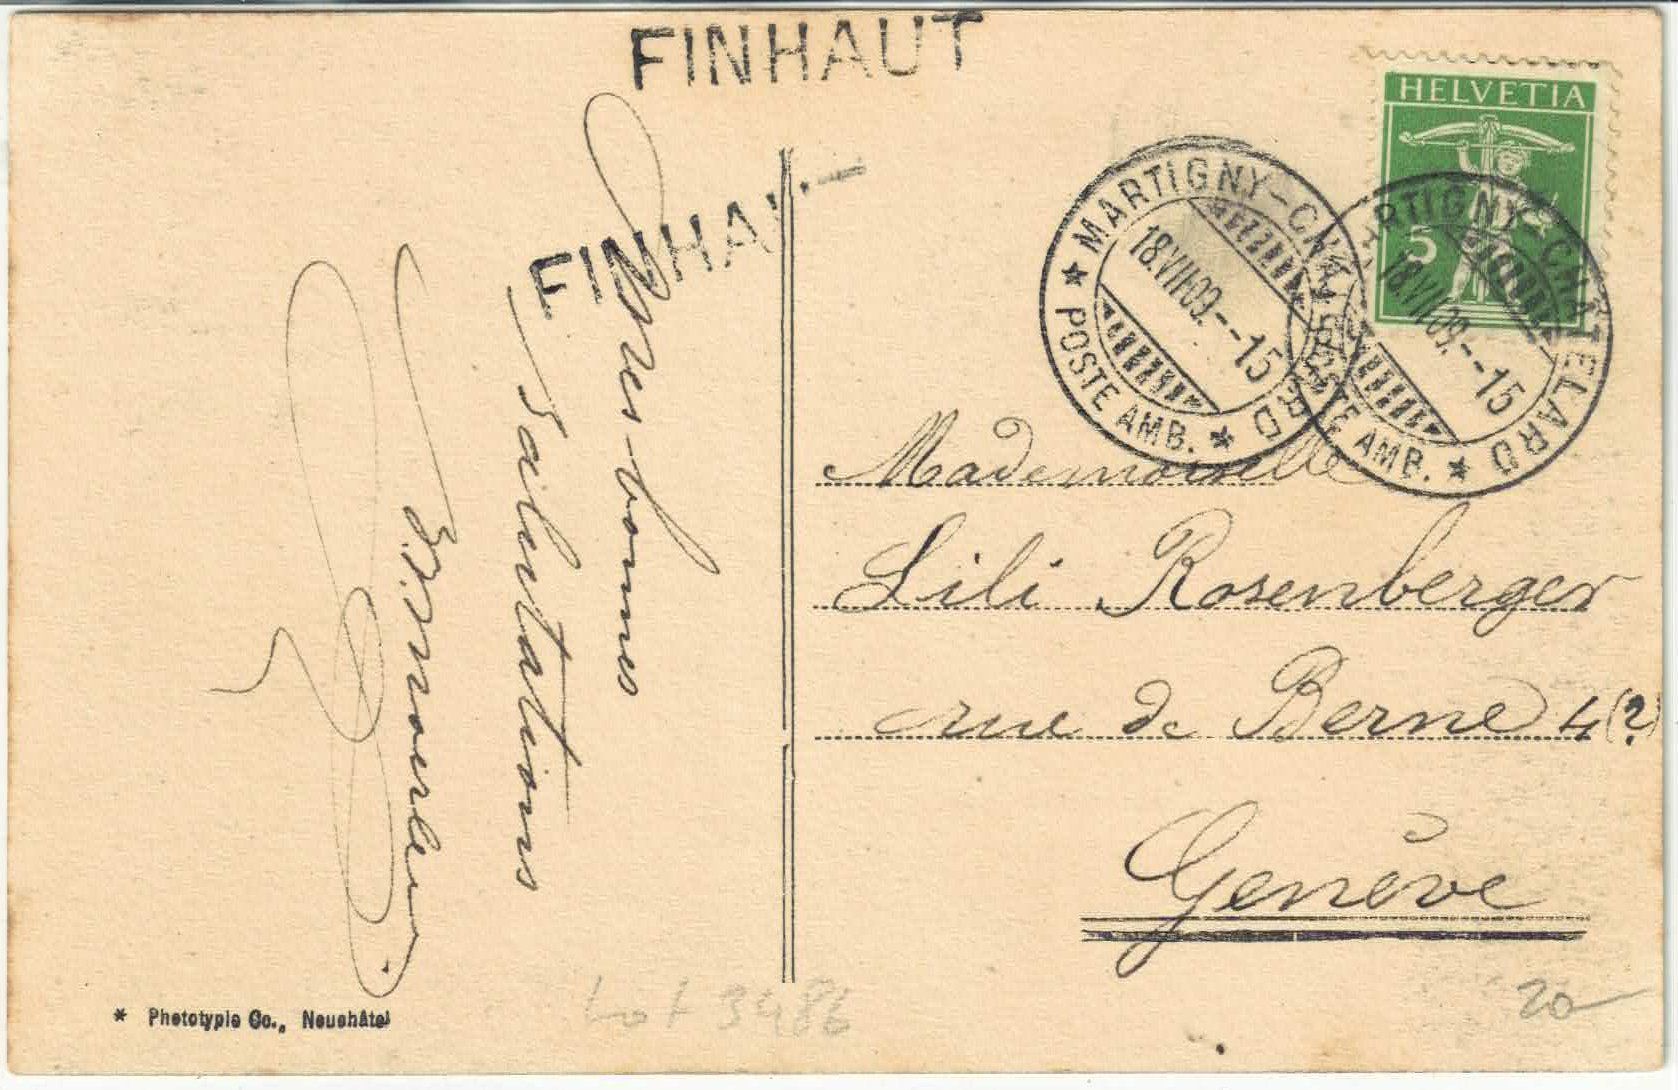 FINHAUT
FINHA
HELVETIA
5
MARTIGNY-CHÂTELARD
18.VII.09.--15
★ POSTE AMB. ★
RTIGNY-CHÂTELARD
18.VII.09.--15
POSTE AMB. ★
Mes bonnes
Salutations
Mademoiselle
Lili Rosenberger
rue de Berne 4(?)
Genève
* Phototypie Co., Neuchâtel
Lot 3486
20